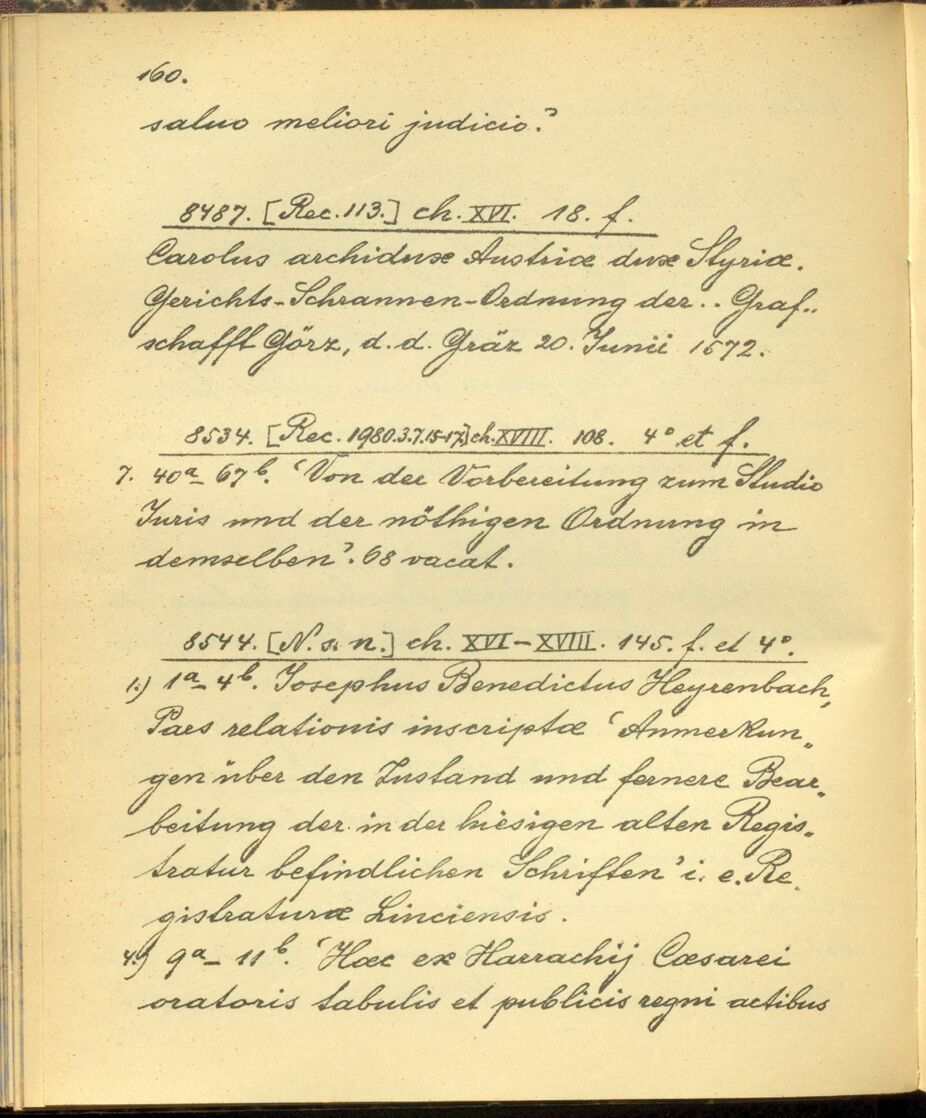 160.
saluo meliori judicio.’
8487. [Rec. 113.] ch. XVI. 18. f.
Carolus archidux Austriæ dux Styriæ.
Gerichts-Schrannen-Ordnung der .. Graf„
schafft Görz, d. d. Gräz 20. Junii 1572.
8534. [Rec. 1980.3.7.15-17.] ch. XVIII. 108. 4° et f.
7. 40a–67b. ‘Von der Vorbereitung zum Studio
Juris und der nöthigen Ordnung in
demselben’. 68 vacat.
8544. [N. s. n.] ch. XVI–XVIII. 145. f. et 4°.
1.) 1a–4b. Josephus Benedictus Heyrenbach,
Pars relationis inscriptæ ‘Anmerkun„
gen über den Zustand und fernere Bear„
beitung der in der hiesigen alten Regis„
tratur befindlichen Schriften’ i. e. Re„
gistraturæ Linciensis.
4.) 9a–11b. ‘Hæc ex Harrachij Cæsarei
oratoris tabulis et publicis regni actibus